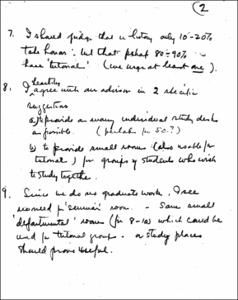 2
7. I should judge that in history only 10-20%
take honors, but that perhaps 80-90%
have 'tutorial' (we urge at least one).
8. I heartily agree with our advisor in 2 specific
suggestions
a) provide as many individual study desks
as possible (perhaps for 50?)
b) to provide small rooms (also usable for
tutorial) for groups of students who wish
to study together.
9. Since we do no graduate work, I see
no need for 'seminar' room. - Some small
'departmental' rooms (for 8-10) which could be
used for tutorial groups - or study places
should prove useful.